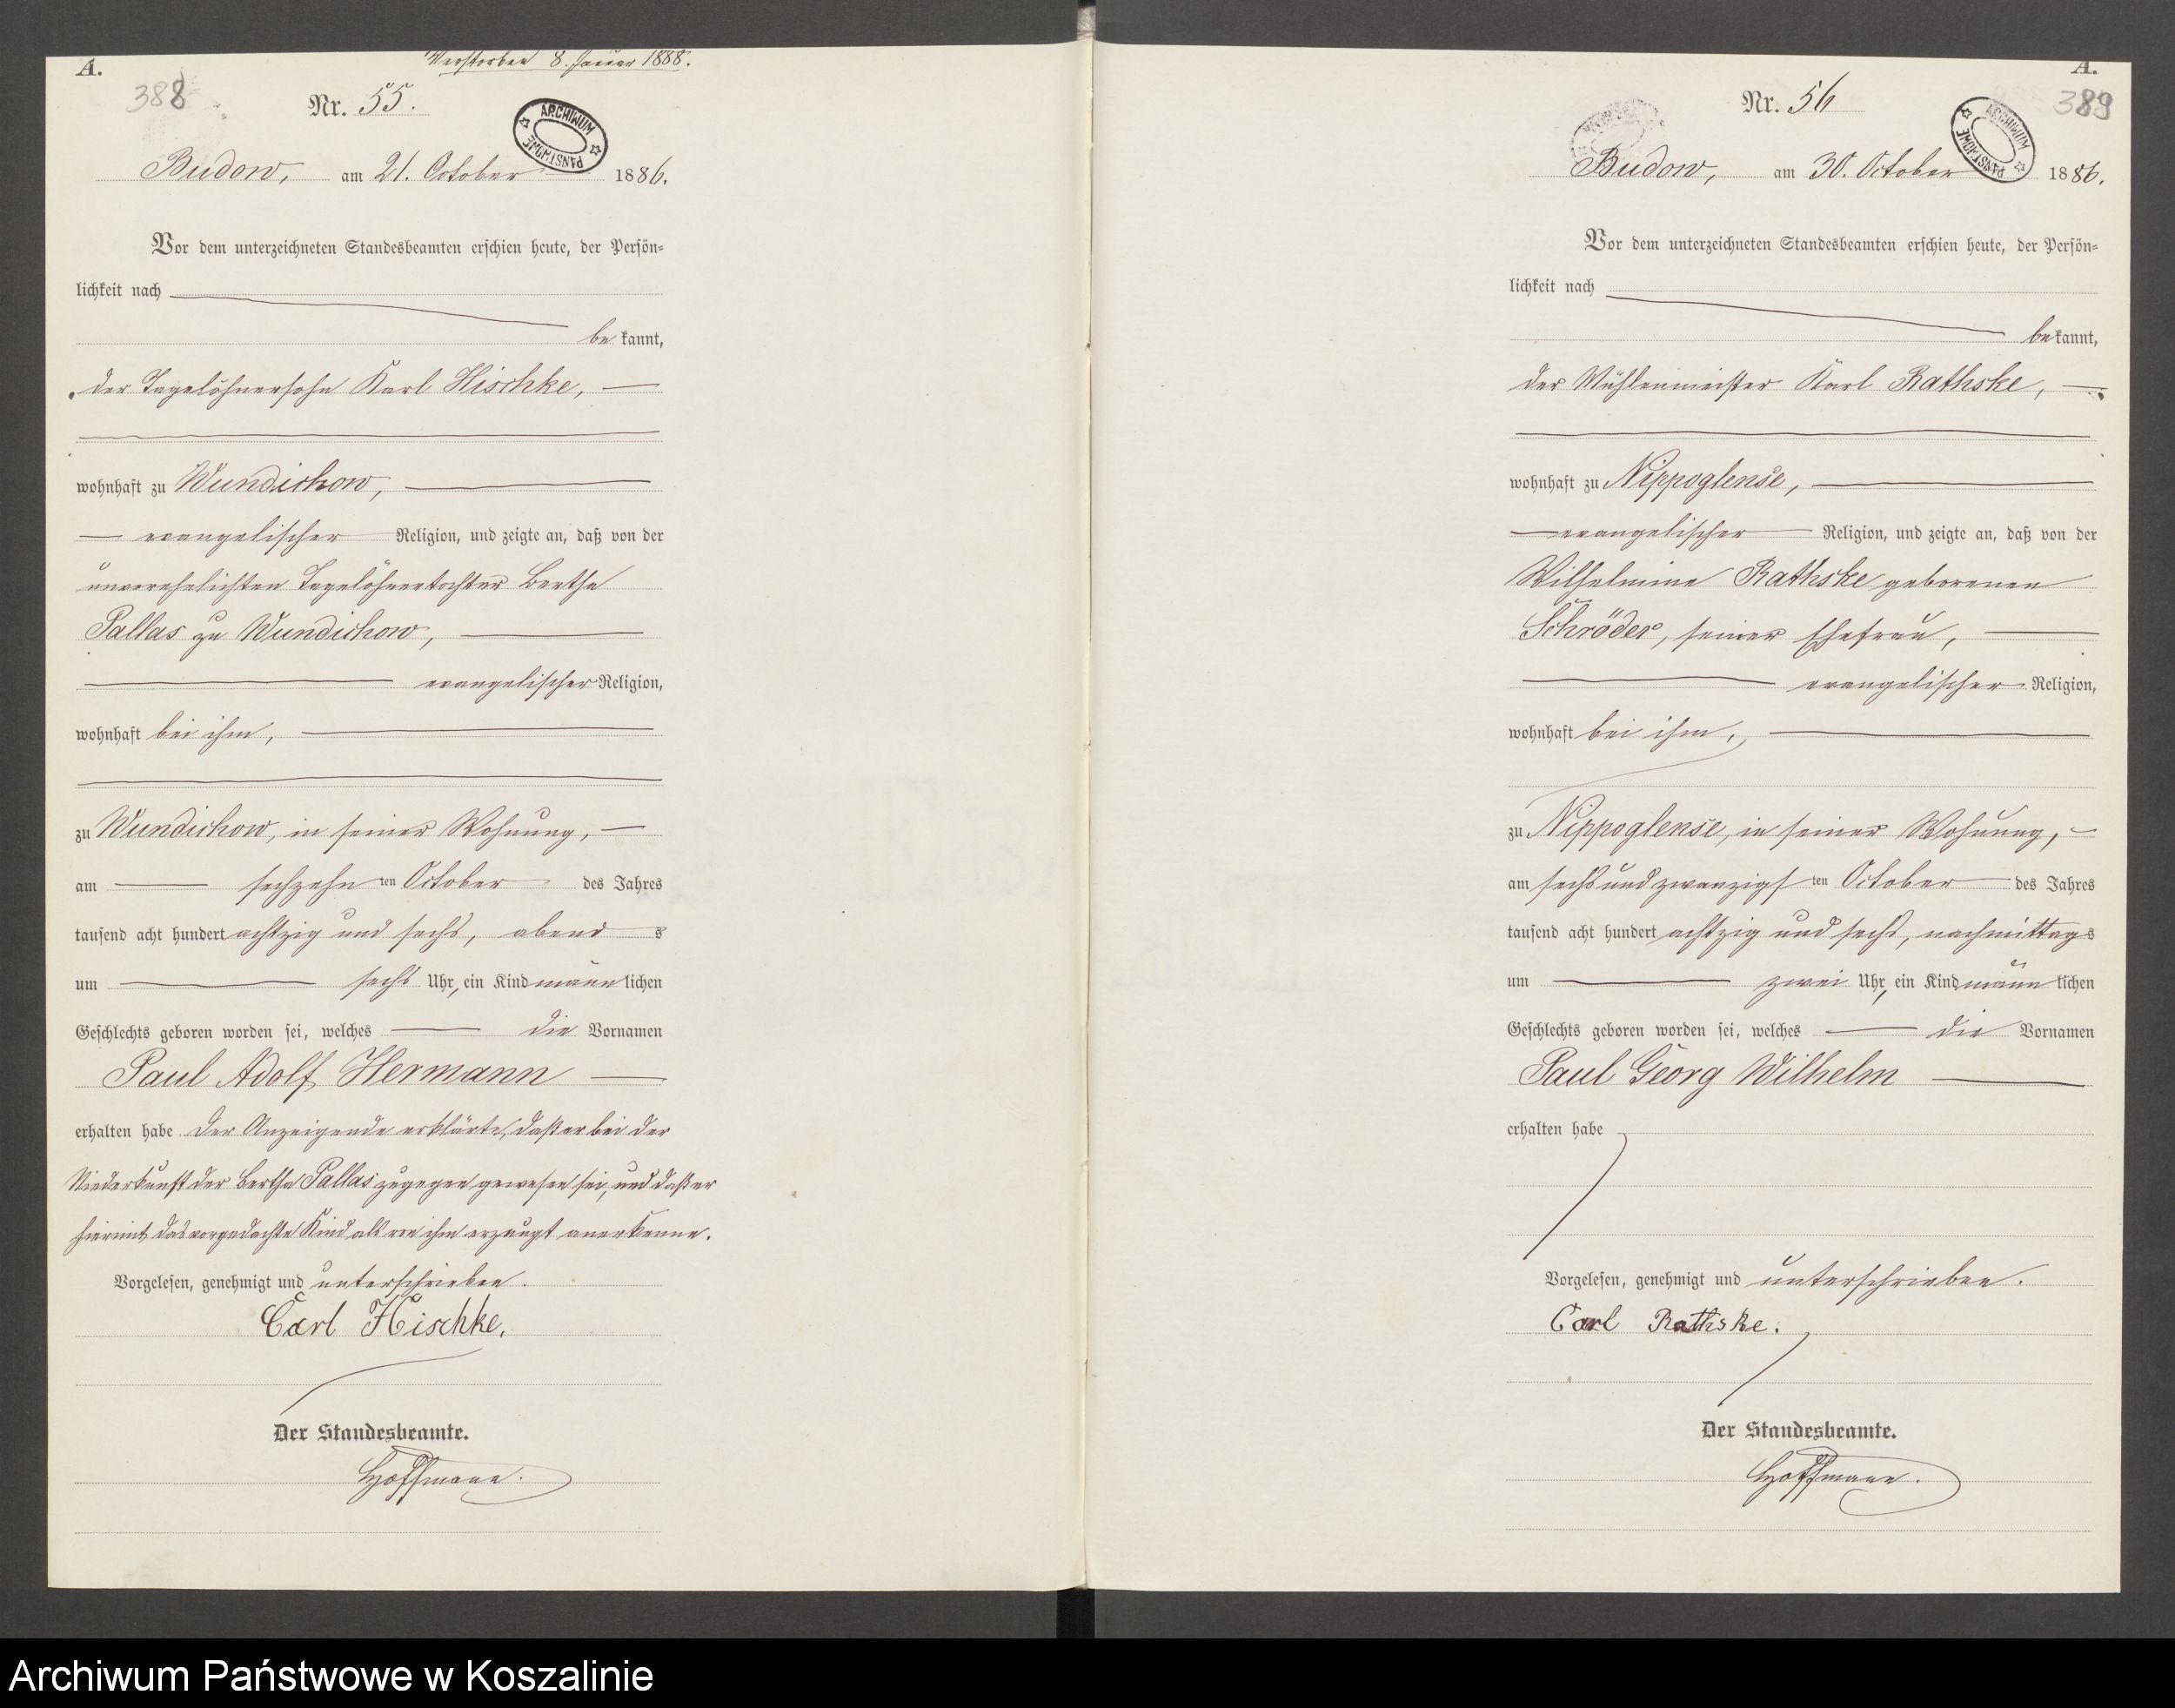 Verstorben 8. Januar 1888.
A.
388
Nr. 55.
ARCHIWUM PAŃSTWOWE
Budow, am 21. October 1886.
Vor dem unterzeichneten Standesbeamten erschien heute, der Persön-
lichkeit nach
bekannt,
der Tagelöhnersohn Karl Hischke,
wohnhaft zu Wundichow,
evangelischer Religion, und zeigte an, daß von der
unverehelichten Tagelöhnertochter Bertha
Pallas zu Wundichow,
evangelischer Religion,
wohnhaft bei ihm,
zu Wundichow, in seiner Wohnung,
am sechzehnten October des Jahres
tausend acht hundert achtzig und sechs, abends
um sechs Uhr, ein Kind männlichen
Geschlechts geboren worden sei, welches die Vornamen
Paul Adolf Hermann
erhalten habe. Der Anzeigende erklärte, daß er bei der
Niederkunft der Bertha Pallas zugegen gewesen sei, und daß er
hiermit das vorgedachte Kind als von ihm erzeugt anerkenne.
Vorgelesen, genehmigt und unterschrieben.
Carl Hischke.
Der Standesbeamte.
Hoffmann.
A.
389
Nr. 56
ARCHIWUM PAŃSTWOWE
Budow, am 30. October 1886.
Vor dem unterzeichneten Standesbeamten erschien heute, der Persön-
lichkeit nach
bekannt,
der Mühlenmeister Karl Rathske,
wohnhaft zu Nippoglense,
evangelischer Religion, und zeigte an, daß von der
Wilhelmine Rathske geborenen
Schröder, seiner Ehefrau,
evangelischer Religion,
wohnhaft bei ihm,
zu Nippoglense, in seiner Wohnung,
am sechsundzwanzigsten October des Jahres
tausend acht hundert achtzig und sechs, nachmittags
um zwei Uhr, ein Kind männlichen
Geschlechts geboren worden sei, welches die Vornamen
Paul Georg Wilhelm
erhalten habe
Vorgelesen, genehmigt und unterschrieben.
Carl Rathske.
Der Standesbeamte.
Hoffmann.
Archiwum Państwowe w Koszalinie